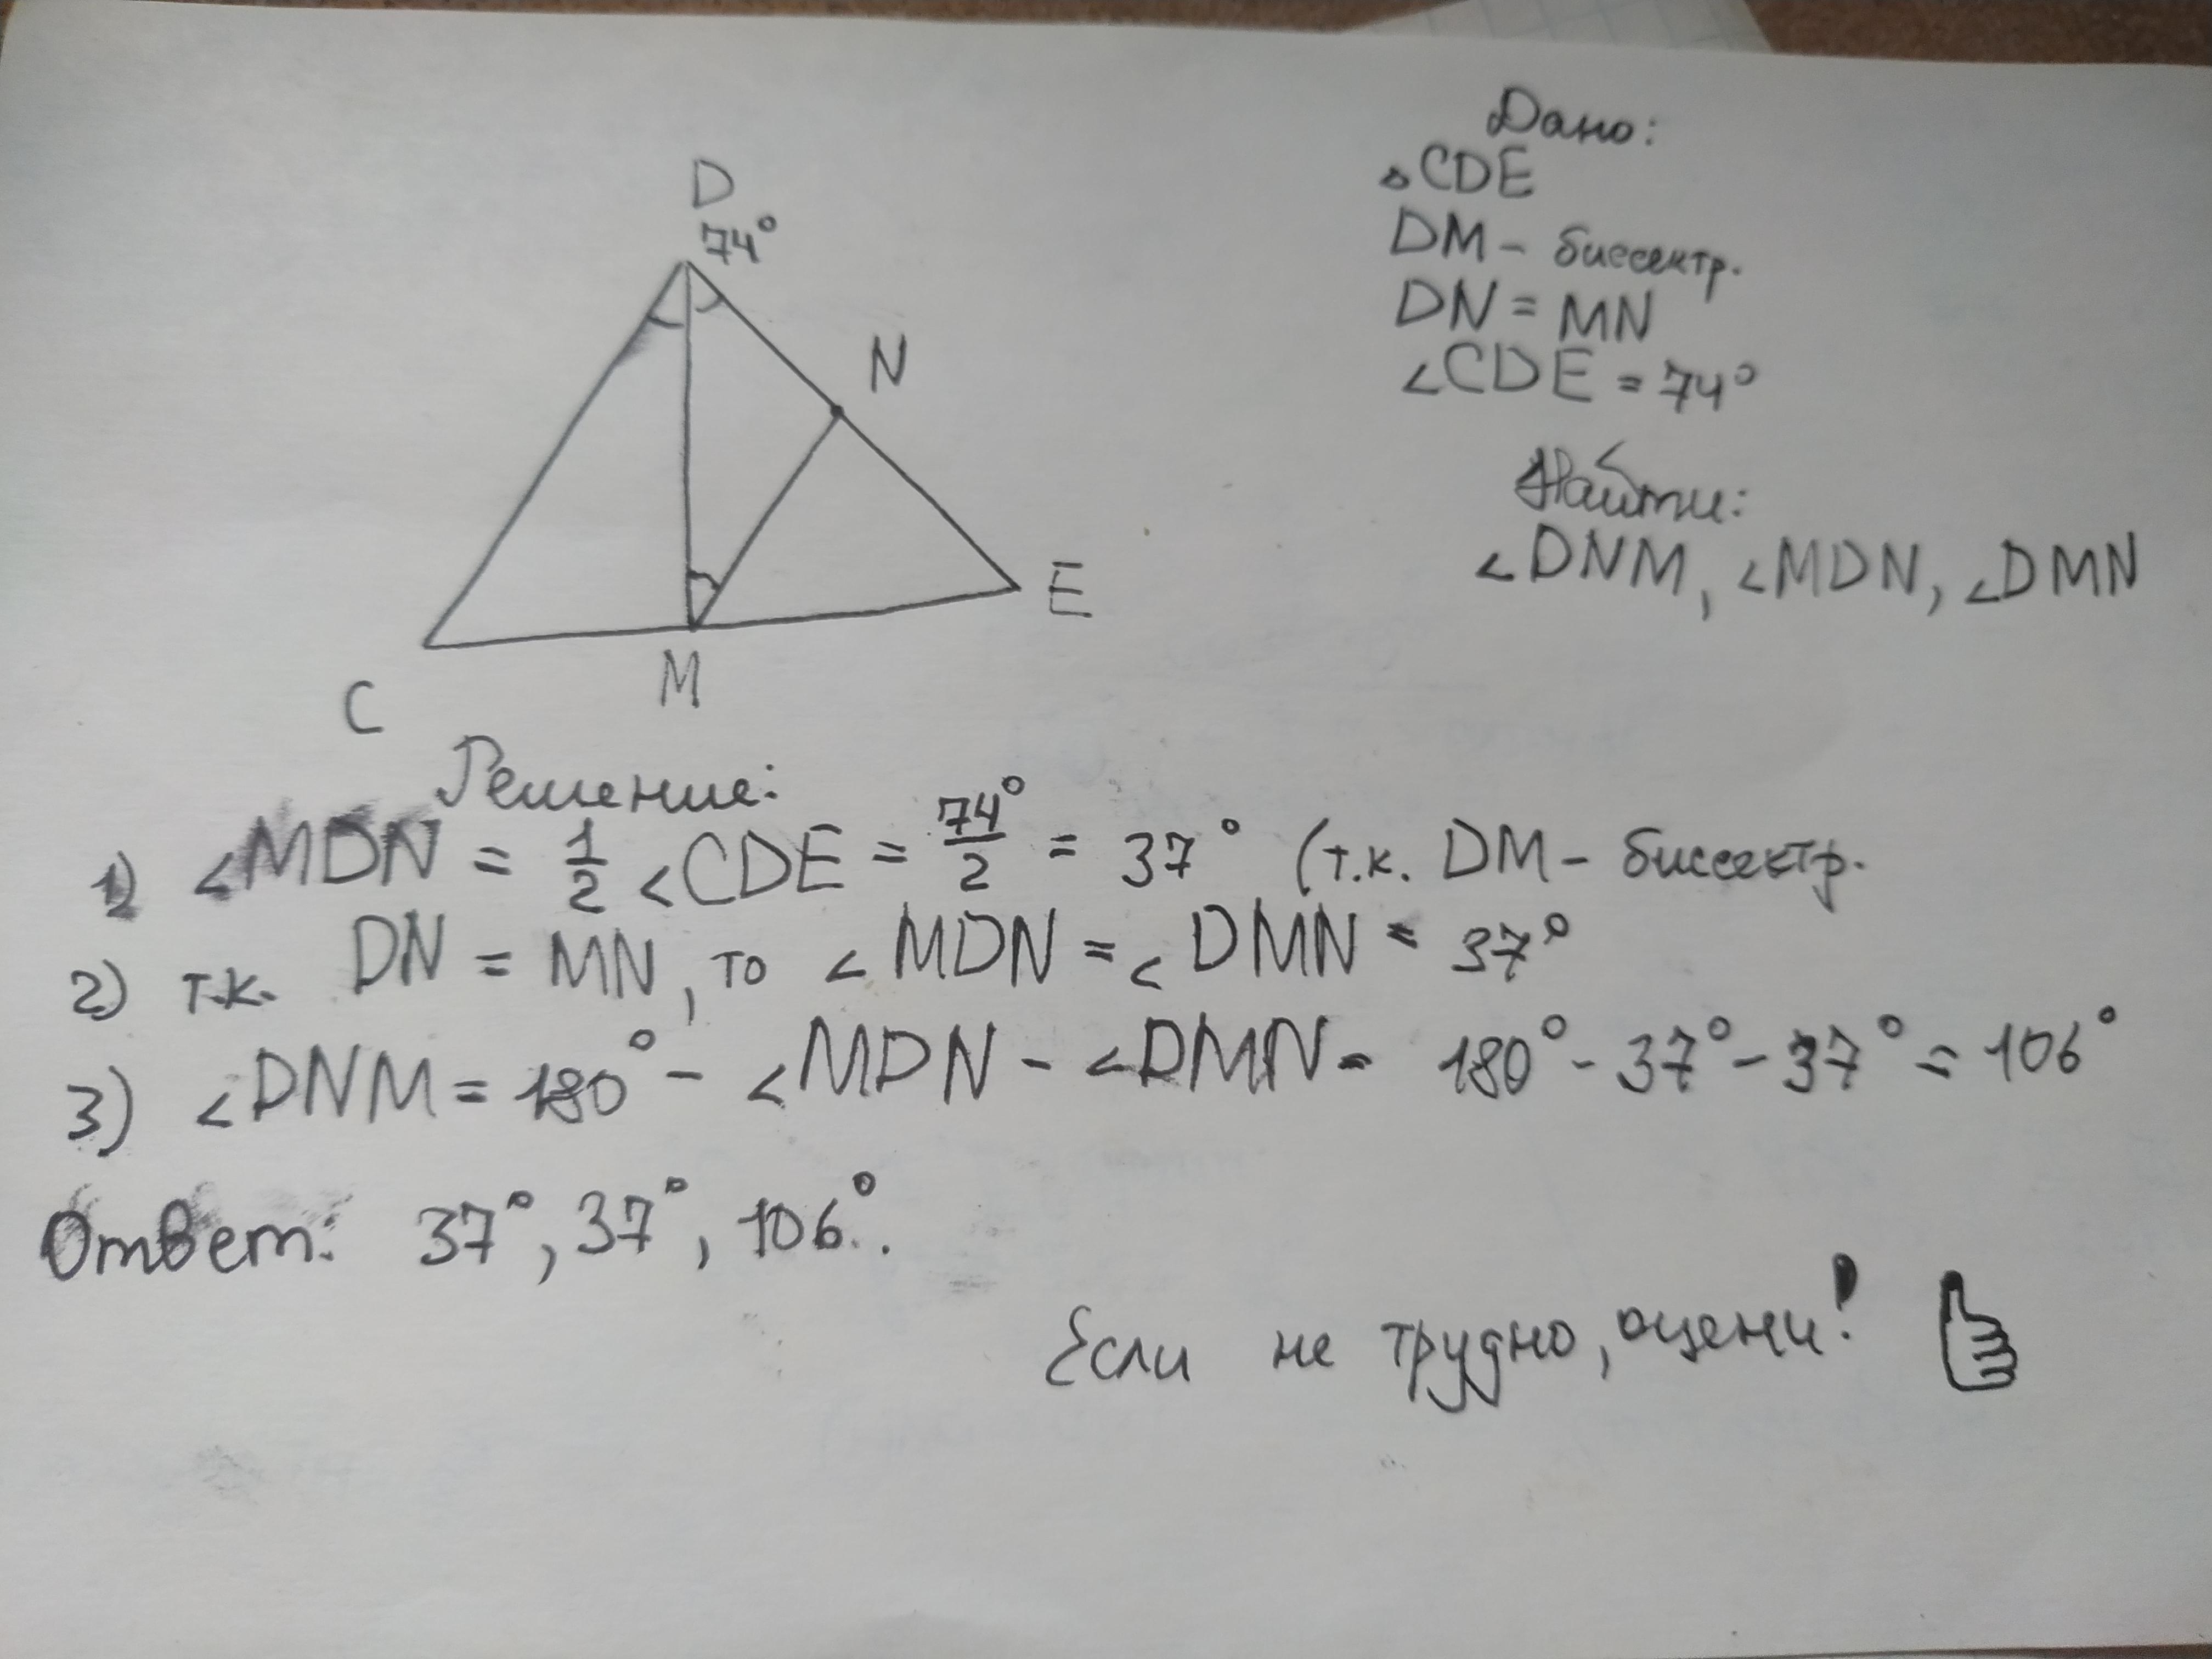 D
74°
N
E
M
C
Дано:
△CDE
DM - биссектр.
DN = MN
∠CDE = 74°
Найти:
∠DNM, ∠MDN, ∠DMN
Решение:
1) ∠MDN = 1/2 ∠CDE = 74°/2 = 37° (т.к. DM - биссектр.
2) т.к. DN = MN, то ∠MDN = ∠DMN = 37°
3) ∠DNM = 180° - ∠MDN - ∠DMN = 180° - 37° - 37° = 106°
Ответ: 37°, 37°, 106°.
Если не трудно, оцени!